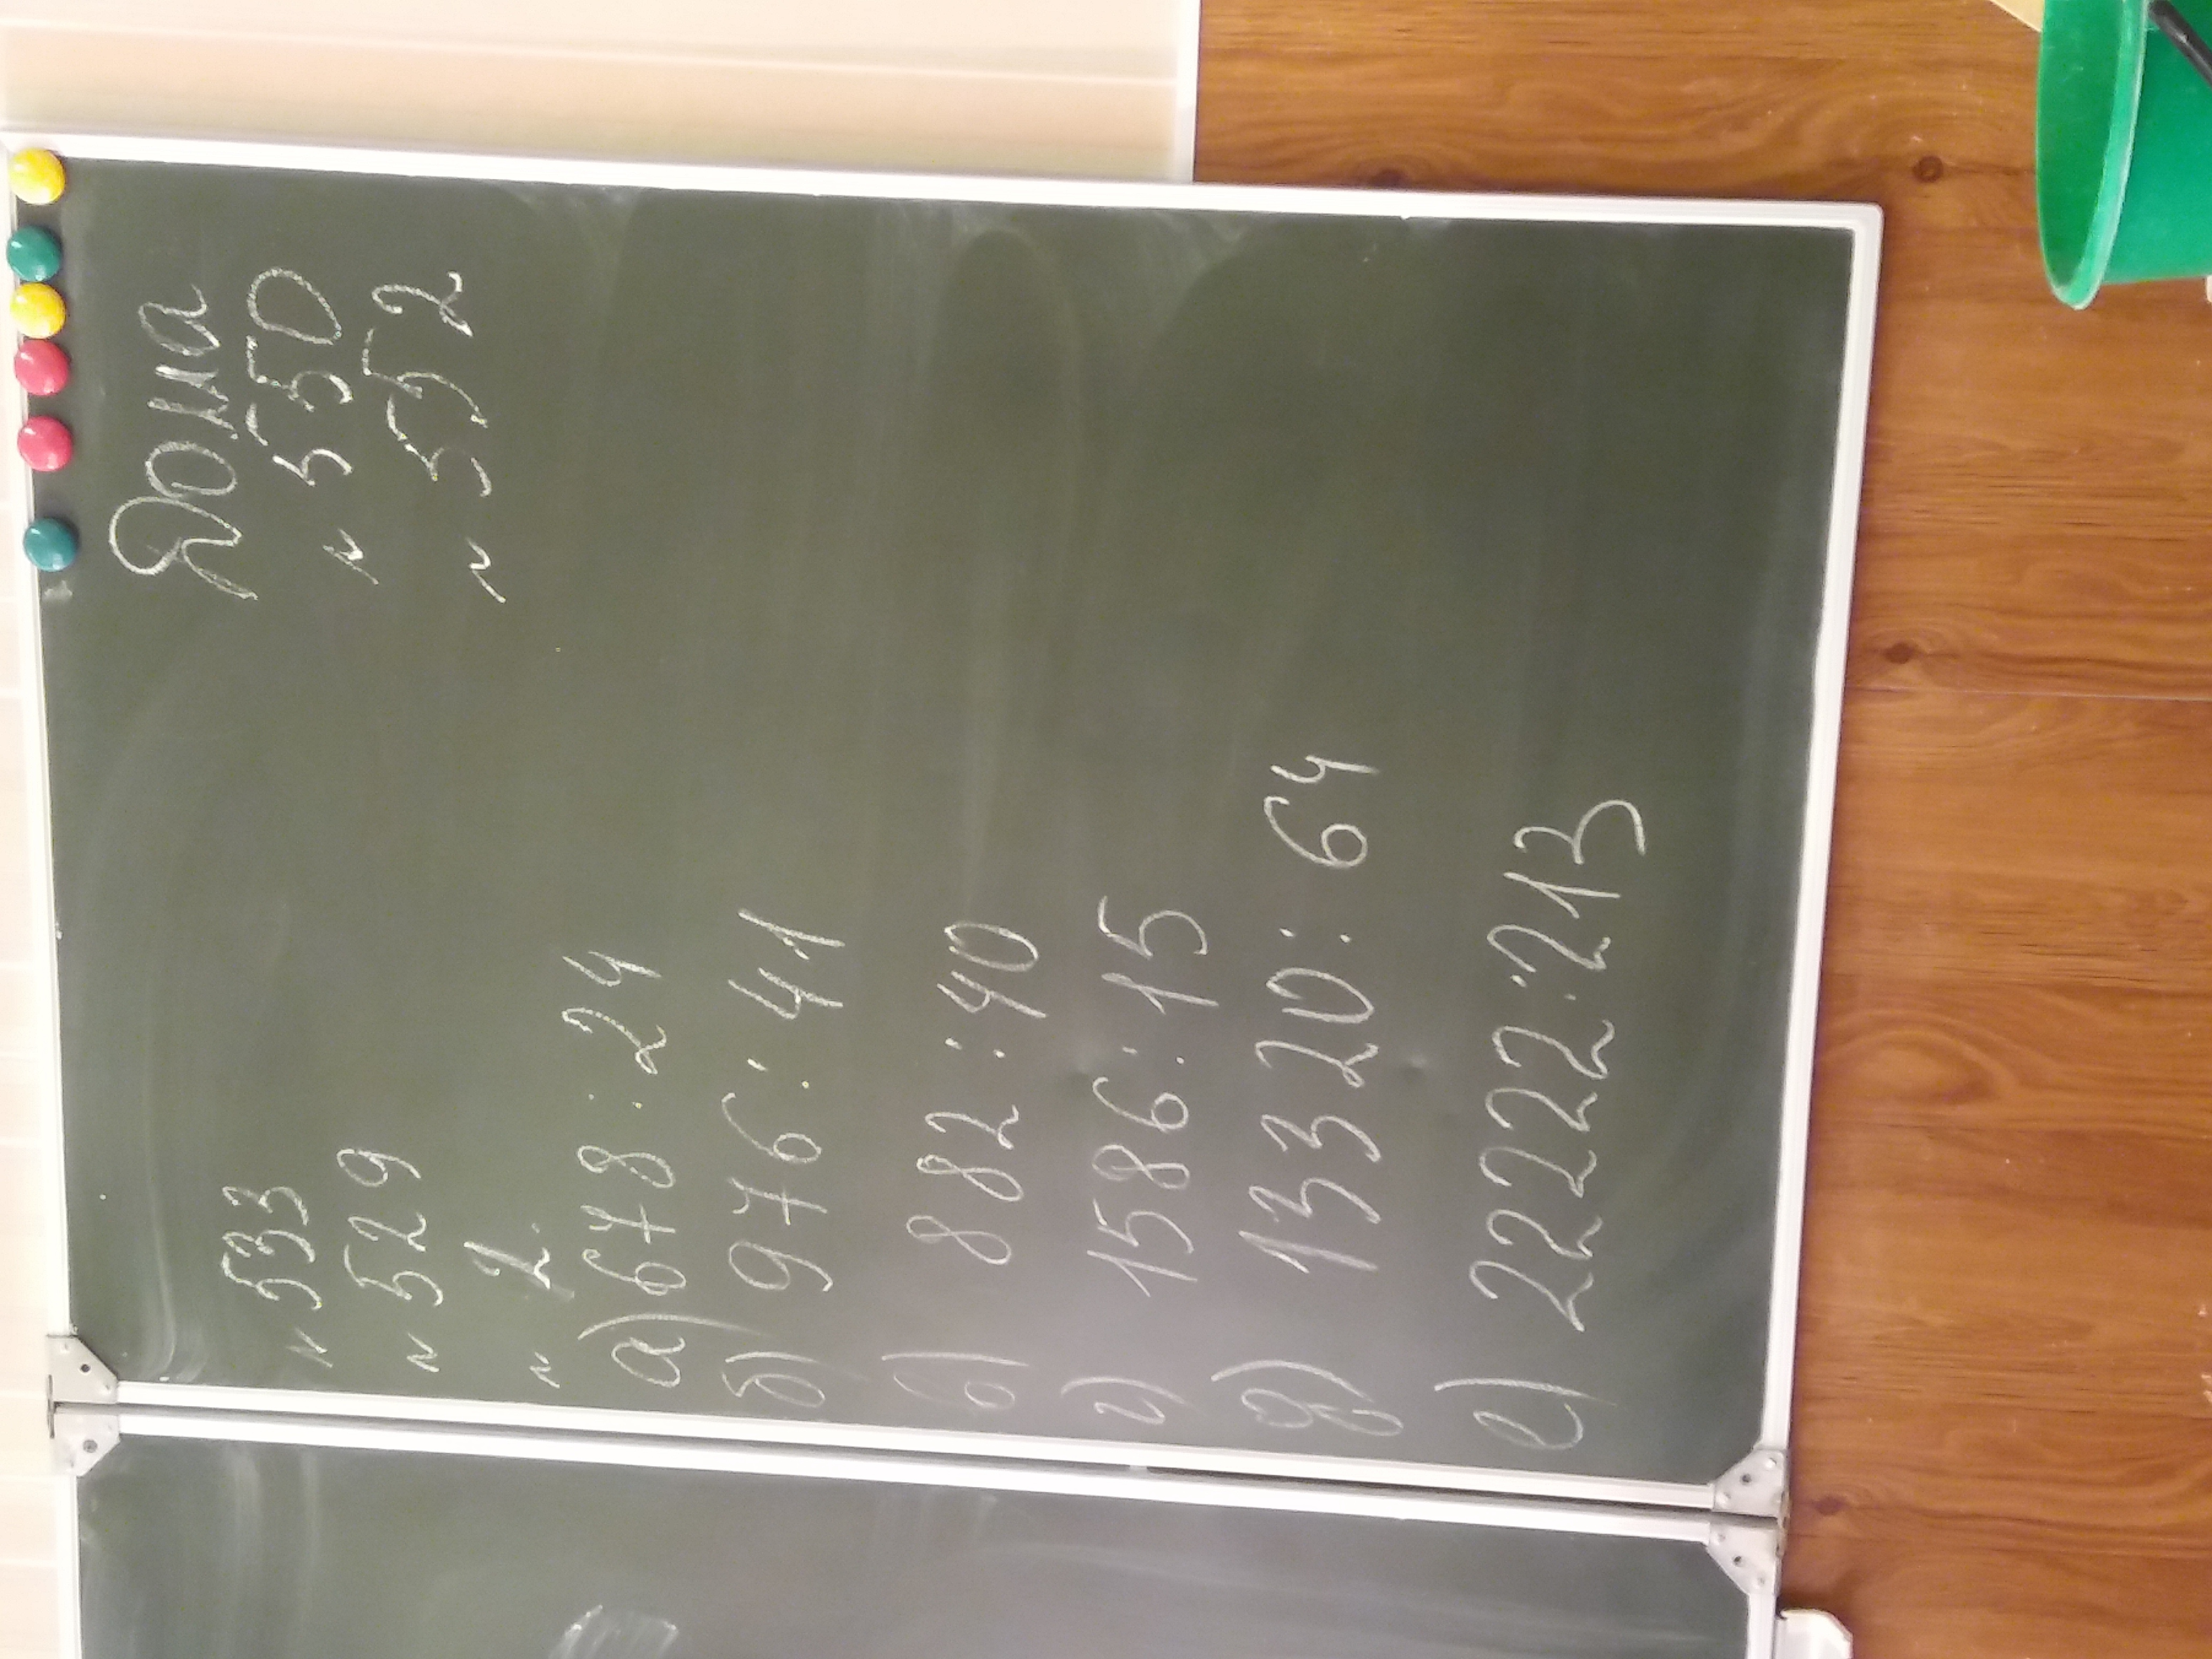 Дома
№ 550
№ 552
№ 533
№ 529
№ 2.
а) 678 : 24
б) 976 : 41
в) 882 : 40
г) 1586 : 15
д) 13320 : 64
е) 22222 : 213